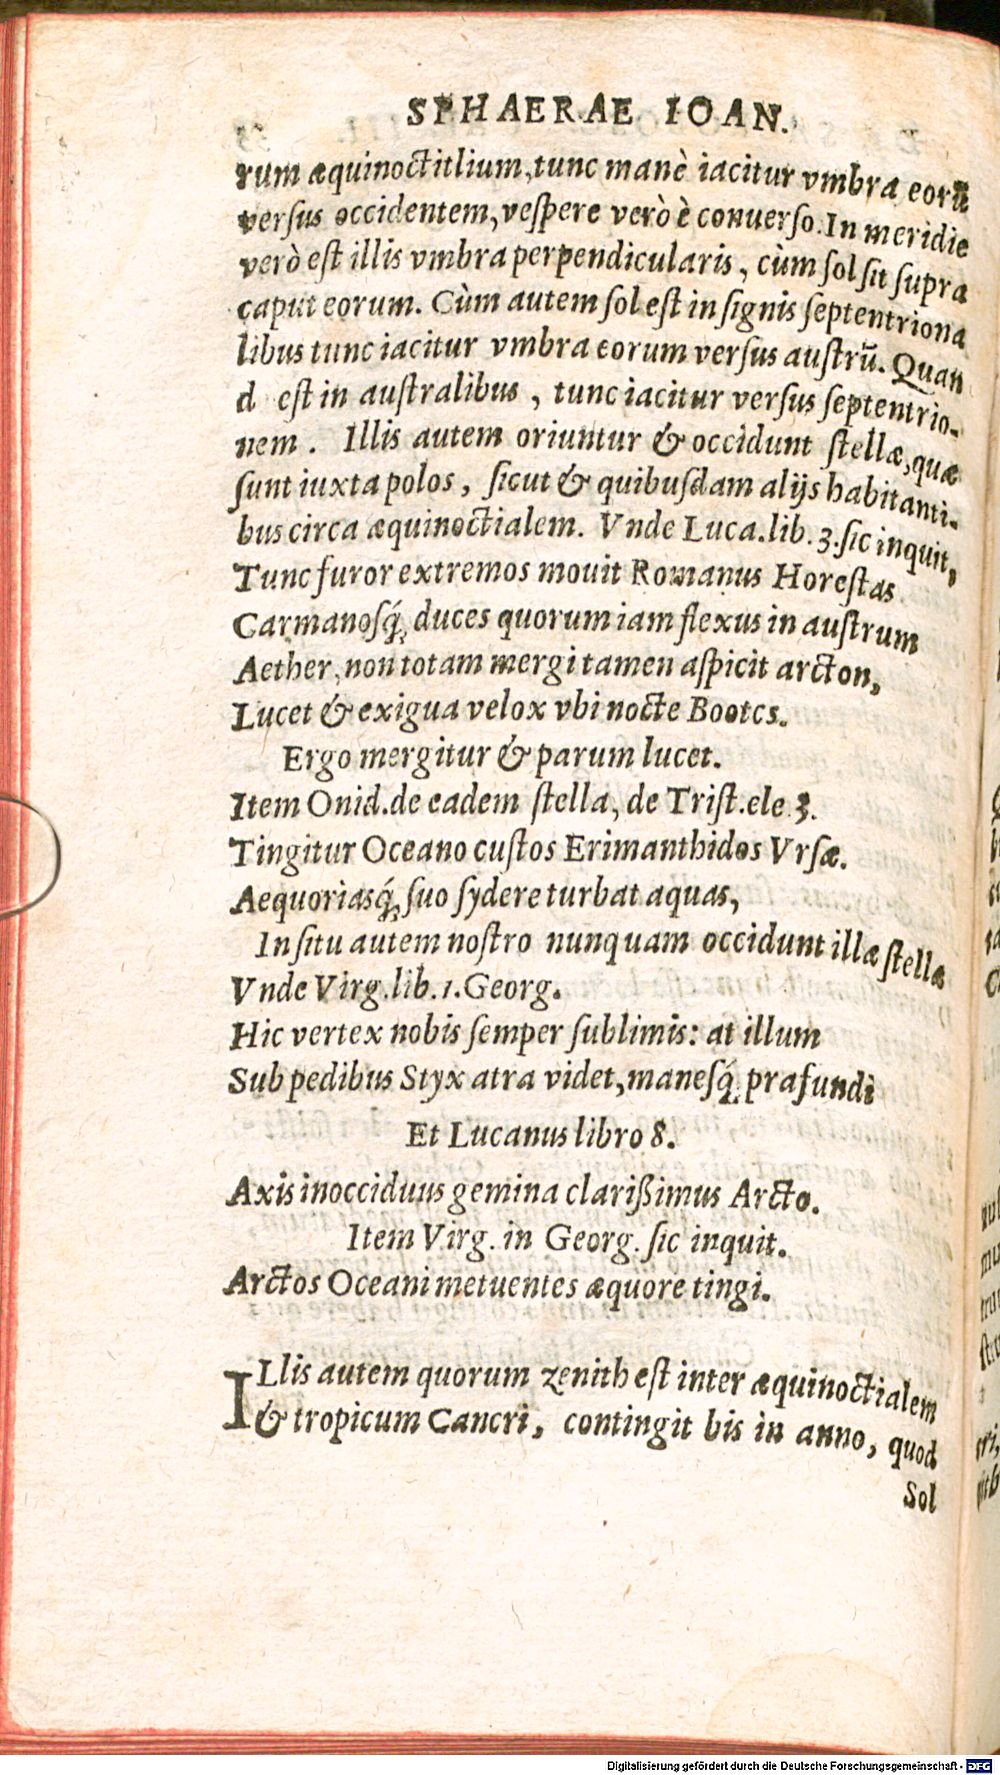 SPHAERAE IOAN.
rum æquinoctitlium, tunc manè iacitur vmbra eorū
versus occidentem, vespere verò è conuerso. In meridie
verò est illis vmbra perpendicularis, cùm sol sit supra
caput eorum. Cùm autem sol est in signis septentriona
libus tunc iacitur vmbra eorum versus austrū. Quan
d est in australibus, tunc iacitur versus septentrio-
nem. Illis autem oriuntur & occidunt stellæ, quæ
sunt iuxta polos, sicut & quibusdam alijs habitanti-
bus circa æquinoctialem. Vnde Luca. lib. 3. sic inquit,
Tunc furor extremos mouit Romanus Horestas
Carmanosq́, duces quorum iam flexus in austrum
Aether, non totam mergi tamen aspicit arcton,
Lucet & exigua velox vbi nocte Bootcs.
Ergo mergitur & parum lucet.
Item Onid. de eadem stella, de Trist. ele 3.
Tingitur Oceano custos Erimanthidos Vrsæ.
Aequoriasq́, suo sydere turbat aquas,
In situ autem nostro nunquam occidunt illæ stellæ
Vnde Virg. lib. 1. Georg.
Hic vertex nobis semper sublimis: at illum
Sub pedibus Styx atra videt, manesq́, prafundi
Et Lucanus libro 8.
Axis inocciduus gemina clarißimus Arcto.
Item Virg. in Georg. sic inquit.
Arctos Oceani metuentes æquore tingi.
ILlis autem quorum zenith est inter æquinoctialem
& tropicum Cancri, contingit bis in anno, quod
Sol
Digitalisierung gefördert durch die Deutsche Forschungsgemeinschaft - DFG